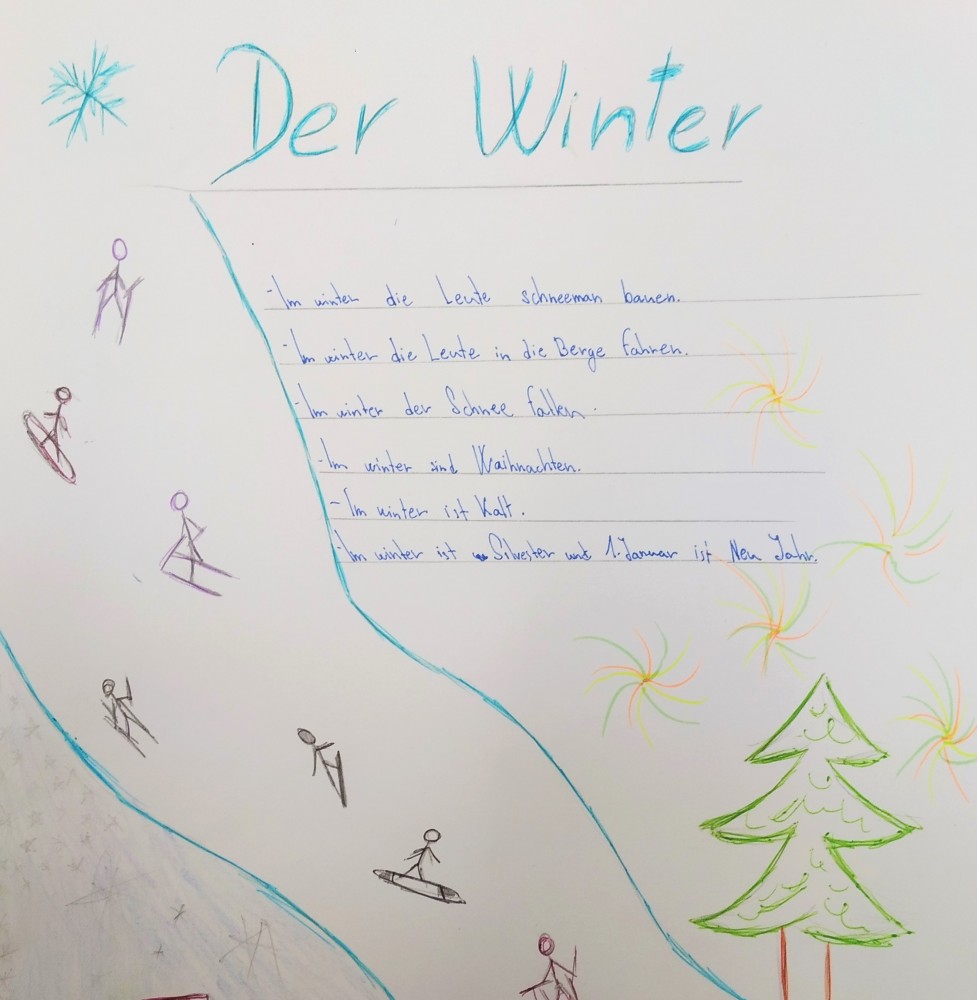 Der Winter
- Im winter die Leute schneeman bauen.
- Im winter die Leute in die Berge fahren.
- Im winter der Schnee fallen.
- Im winter sind Waihnachten.
- Im winter ist Kalt.
- Im winter ist Silvester und 1. Januar ist Neu Jahr.